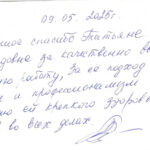 09.05.2025г
спасибо Татьяне
за качественно
работу, За ее подход
и профессионализм
ей крепкого Здоровья
во всех делах.